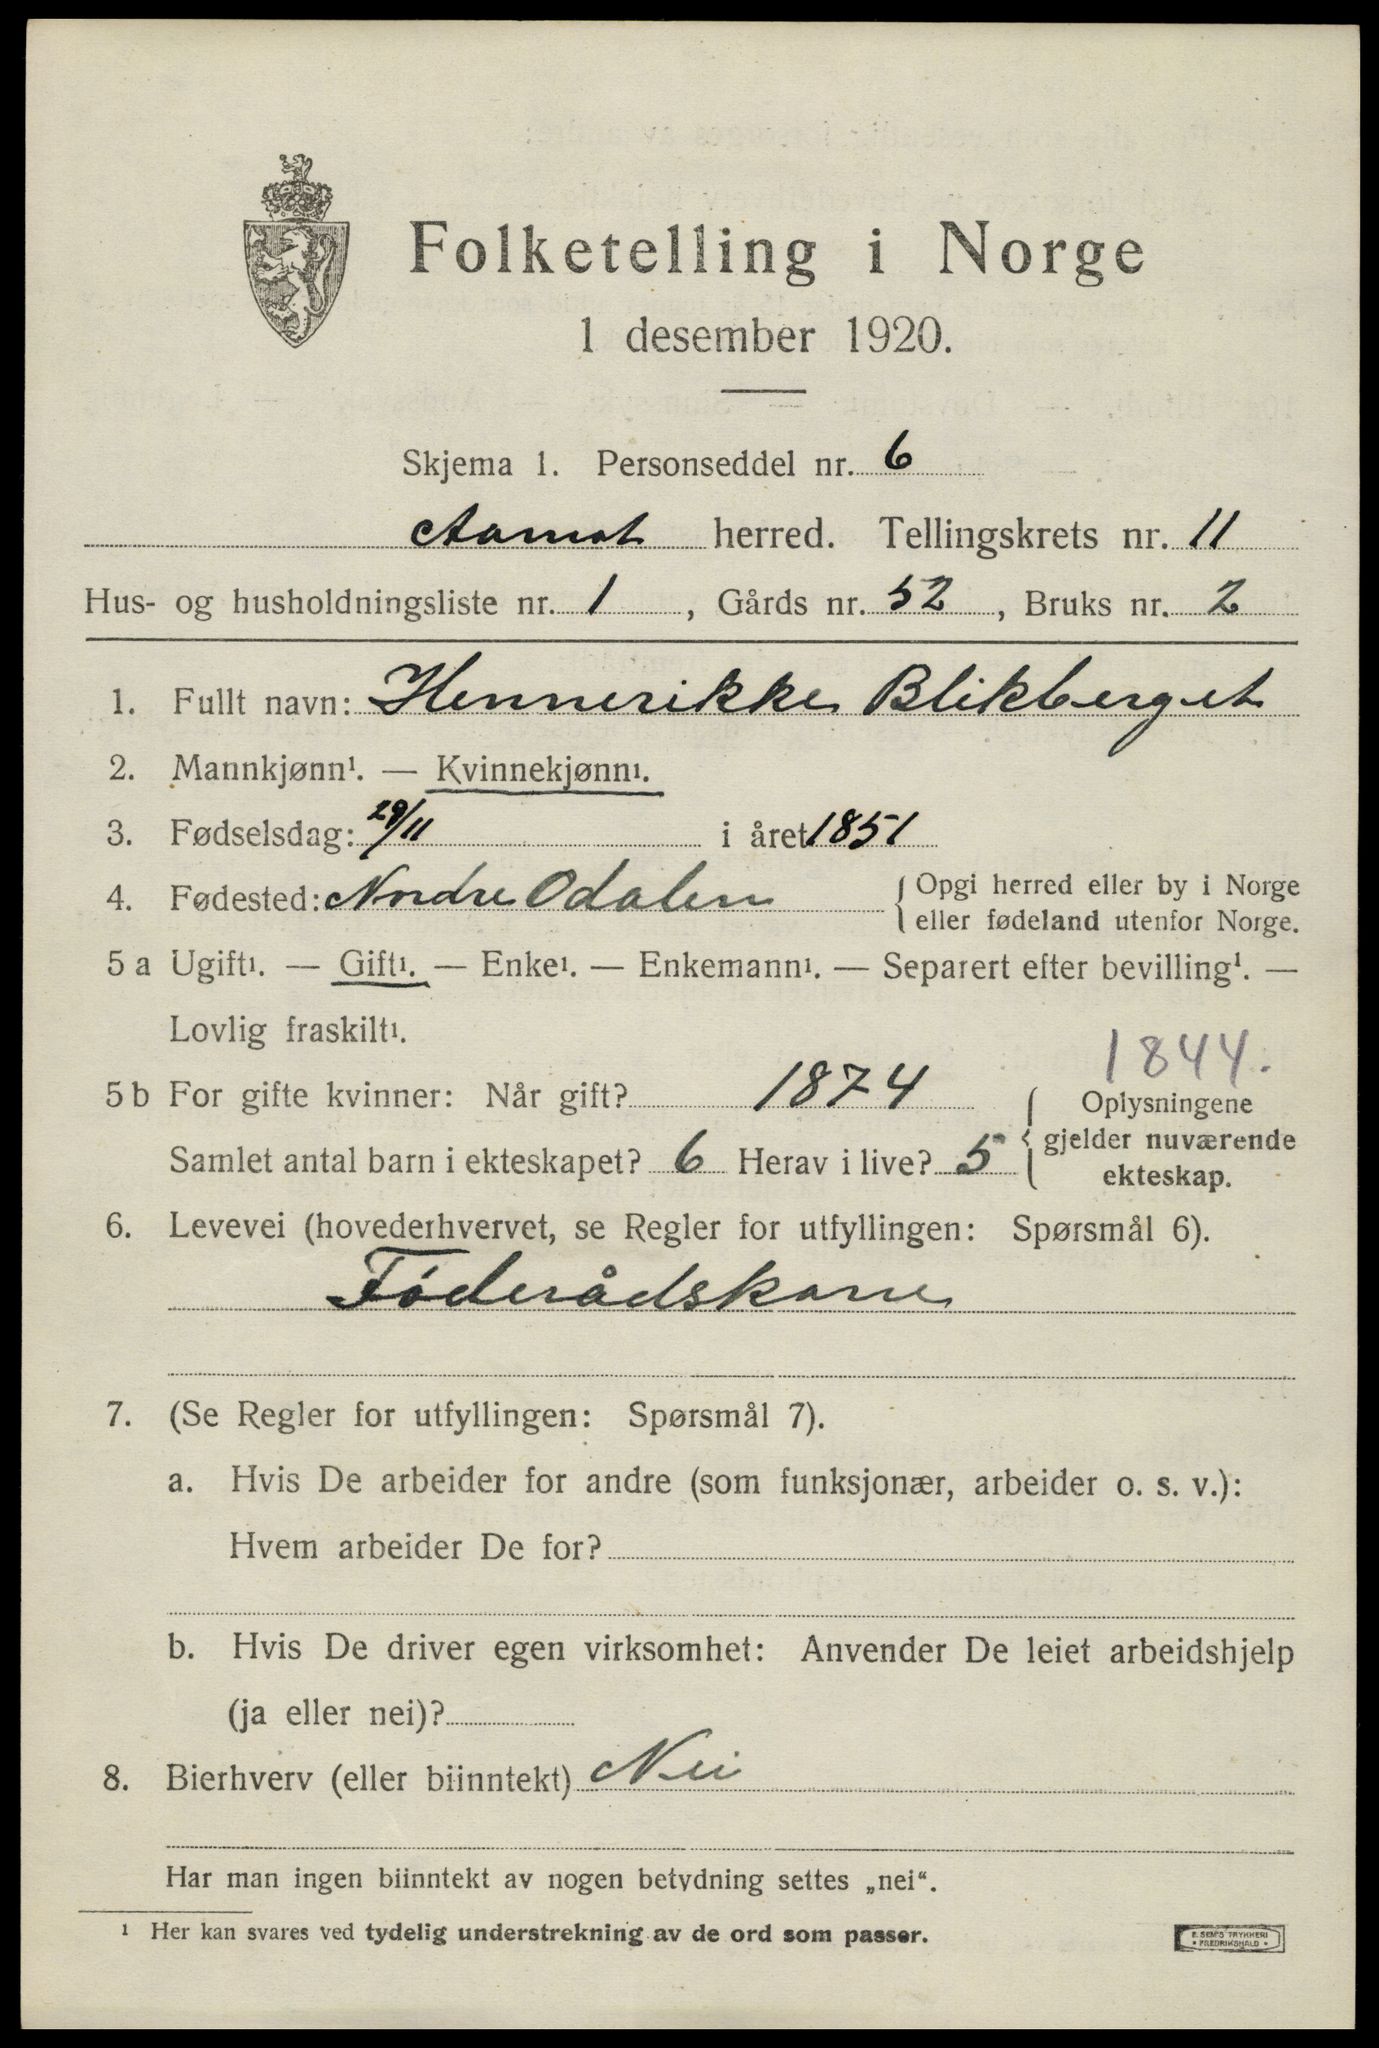 Folketelling i Norge
1 desember 1920.
Skjema 1. Personseddel nr. 6
Aamot herred. Tellingskrets nr. 11
Hus- og husholdningsliste nr. 1, Gårds nr. 52, Bruks nr. 2
1. Fullt navn: Hennerikke Blikberget
2. Mannkjønn¹. — Kvinnekjønn¹.
3. Fødselsdag: 29/11 i året 1851
4. Fødested: Nordre Odalen { Opgi herred eller by i Norge
eller fødeland utenfor Norge.
5 a Ugift¹. — Gift¹. — Enke¹. — Enkemann¹. — Separert efter bevilling¹. —
Lovlig fraskilt¹.
1844.
5 b For gifte kvinner: Når gift? 1874 { Oplysningene
gjelder nuværende
Samlet antal barn i ekteskapet? 6 Herav i live? 5
ekteskap.
6. Levevei (hovederhvervet, se Regler for utfyllingen: Spørsmål 6).
Føderådskone
7. (Se Regler for utfyllingen: Spørsmål 7).
a. Hvis De arbeider for andre (som funksjonær, arbeider o. s. v.):
Hvem arbeider De for?
b. Hvis De driver egen virksomhet: Anvender De leiet arbeidshjelp
(ja eller nei)?
8. Bierhverv (eller biinntekt) Nei
Har man ingen biinntekt av nogen betydning settes „nei“.
¹ Her kan svares ved tydelig understrekning av de ord som passer.
E. SEM'S TRYKKERI
• FREDRIKSHALD •